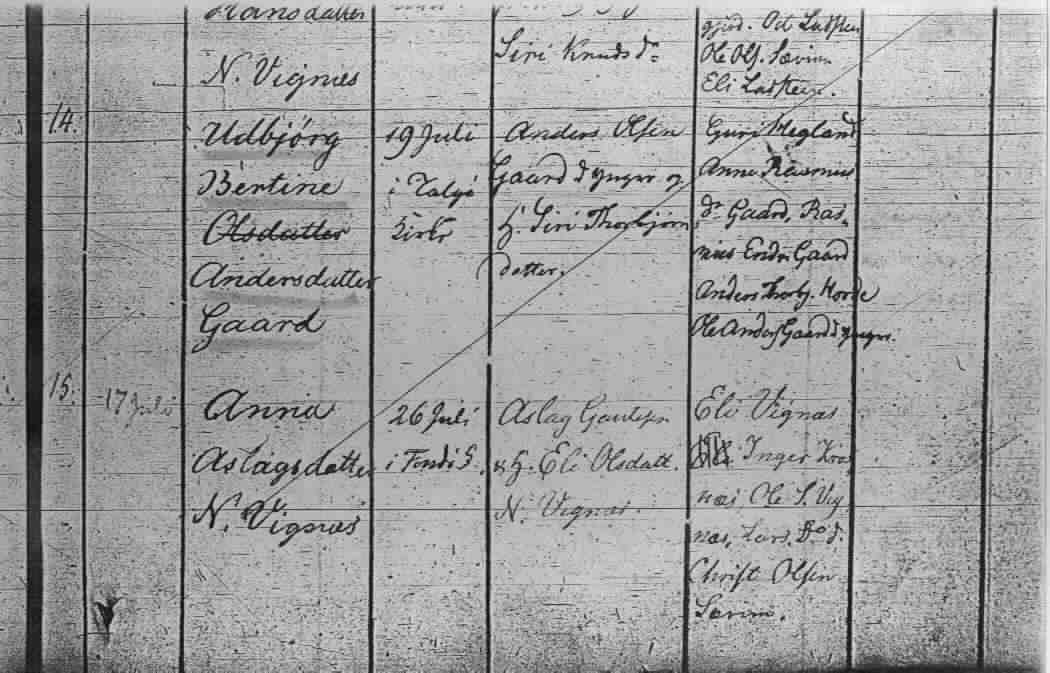 Hansdatter
N. Vignæs
Siri Knudsdr
Ole Ols. Sævim
Eli Ladstein.
14.
Udbjörg
Bertine
Olsdatter
Andersdatter
Gaard
19 Juli
i Talgö
Kirke
Anders Olsen
Gaard d yngre og
h. Siri Thorbjörn
datter.
Guri Hegland
Anna Rasmus
dr Gaard, Ras
mus Endr. Gaard
Anders Thorbj. Horde
Ole Anders Gaard d yngre.
15.
17 Juli
Anna
Aslagsdatter
N. Vignæs
26 Juli
i
Aslag
& h. Eli Olsdatt.
N. Vignæs.
Eli Vignæs
Inger
næs, Ole S. Vig
næs, Lars Do d.
Christ Olsen
Sævim.